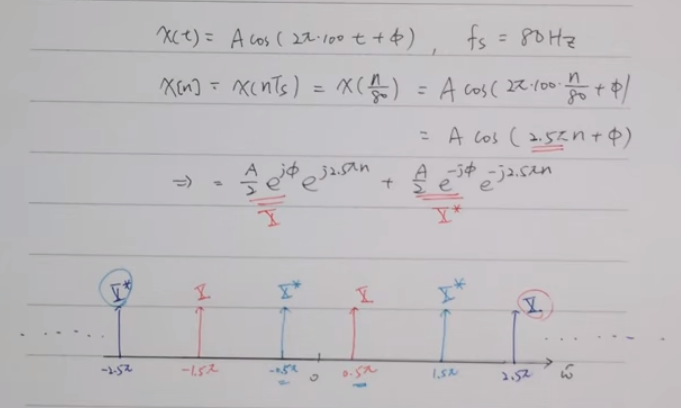 x(t) = A cos(2π·100 t + ϕ), fs = 80Hz
x[n] = x(nTs) = x(n/80) = A cos(2π·100·n/80 + ϕ)
= A cos(2.5πn + ϕ)
⇒ = A/2 e^{jϕ} e^{j2.5πn} + A/2 e^{-jϕ} e^{-j2.5πn}
X X*
X* X X* X X* X
..... ......
-2.5π -1.5π -0.5π 0 0.5π 1.5π 2.5π ω̂